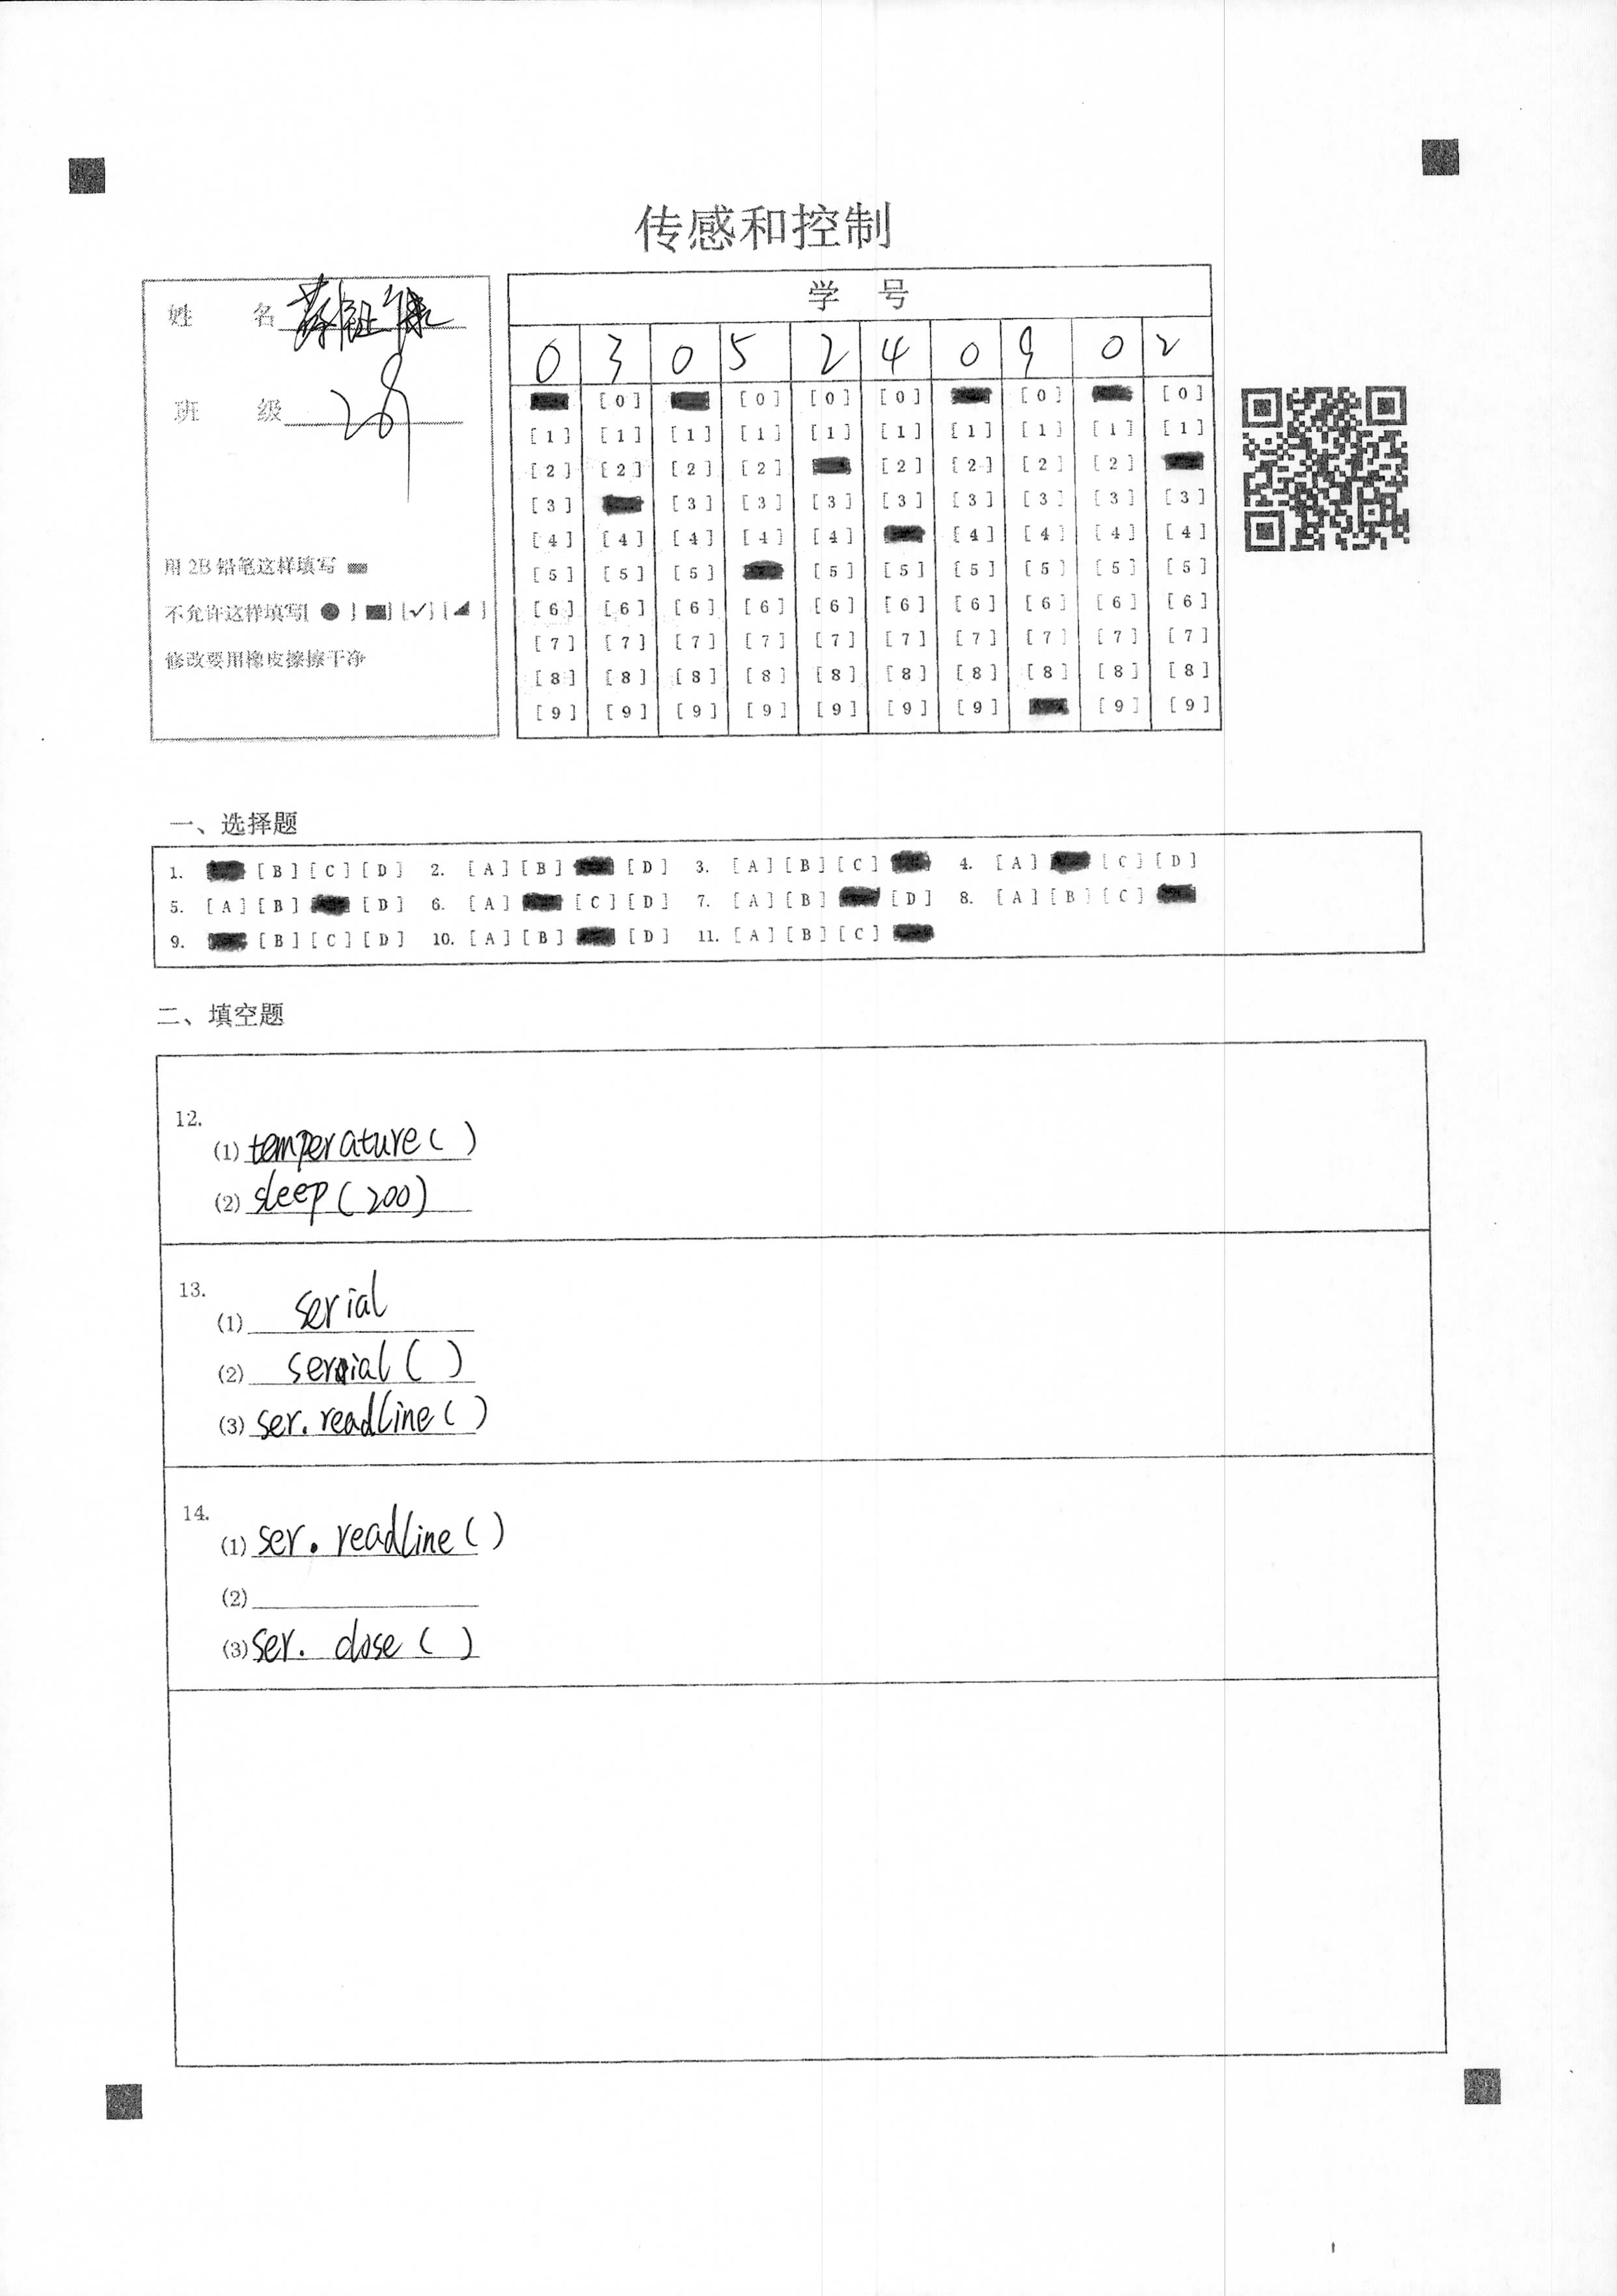 传感和控制
姓 名
班 级 28
用 2B 铅笔这样填写
不允许这样填写[ ● ] [■] [✓] [◢ ]
修改要用橡皮擦擦干净
学 号
0 3 0 5 2 4 0 9 0 2
[0] [0] [0] [0] [0] [0]
[1] [1] [1] [1] [1] [1] [1] [1] [1] [1]
[2] [2] [2] [2] [2] [2] [2] [2]
[3] [3] [3] [3] [3] [3] [3] [3] [3]
[4] [4] [4] [4] [4] [4] [4] [4] [4]
[5] [5] [5] [5] [5] [5] [5] [5] [5]
[6] [6] [6] [6] [6] [6] [6] [6] [6] [6]
[7] [7] [7] [7] [7] [7] [7] [7] [7] [7]
[8] [8] [8] [8] [8] [8] [8] [8] [8] [8]
[9] [9] [9] [9] [9] [9] [9] [9] [9]
一、选择题
1. [B] [C] [D] 2. [A] [B] [D] 3. [A] [B] [C] 4. [A] [C] [D]
5. [A] [B] [D] 6. [A] [C] [D] 7. [A] [B] [D] 8. [A] [B] [C]
9. [B] [C] [D] 10. [A] [B] [D] 11. [A] [B] [C]
二、填空题
12.
(1) temperature( )
(2) sleep(200)
13.
(1) serial
(2) serial( )
(3) ser.readline( )
14.
(1) ser.readline( )
(2)
(3) ser.close( )